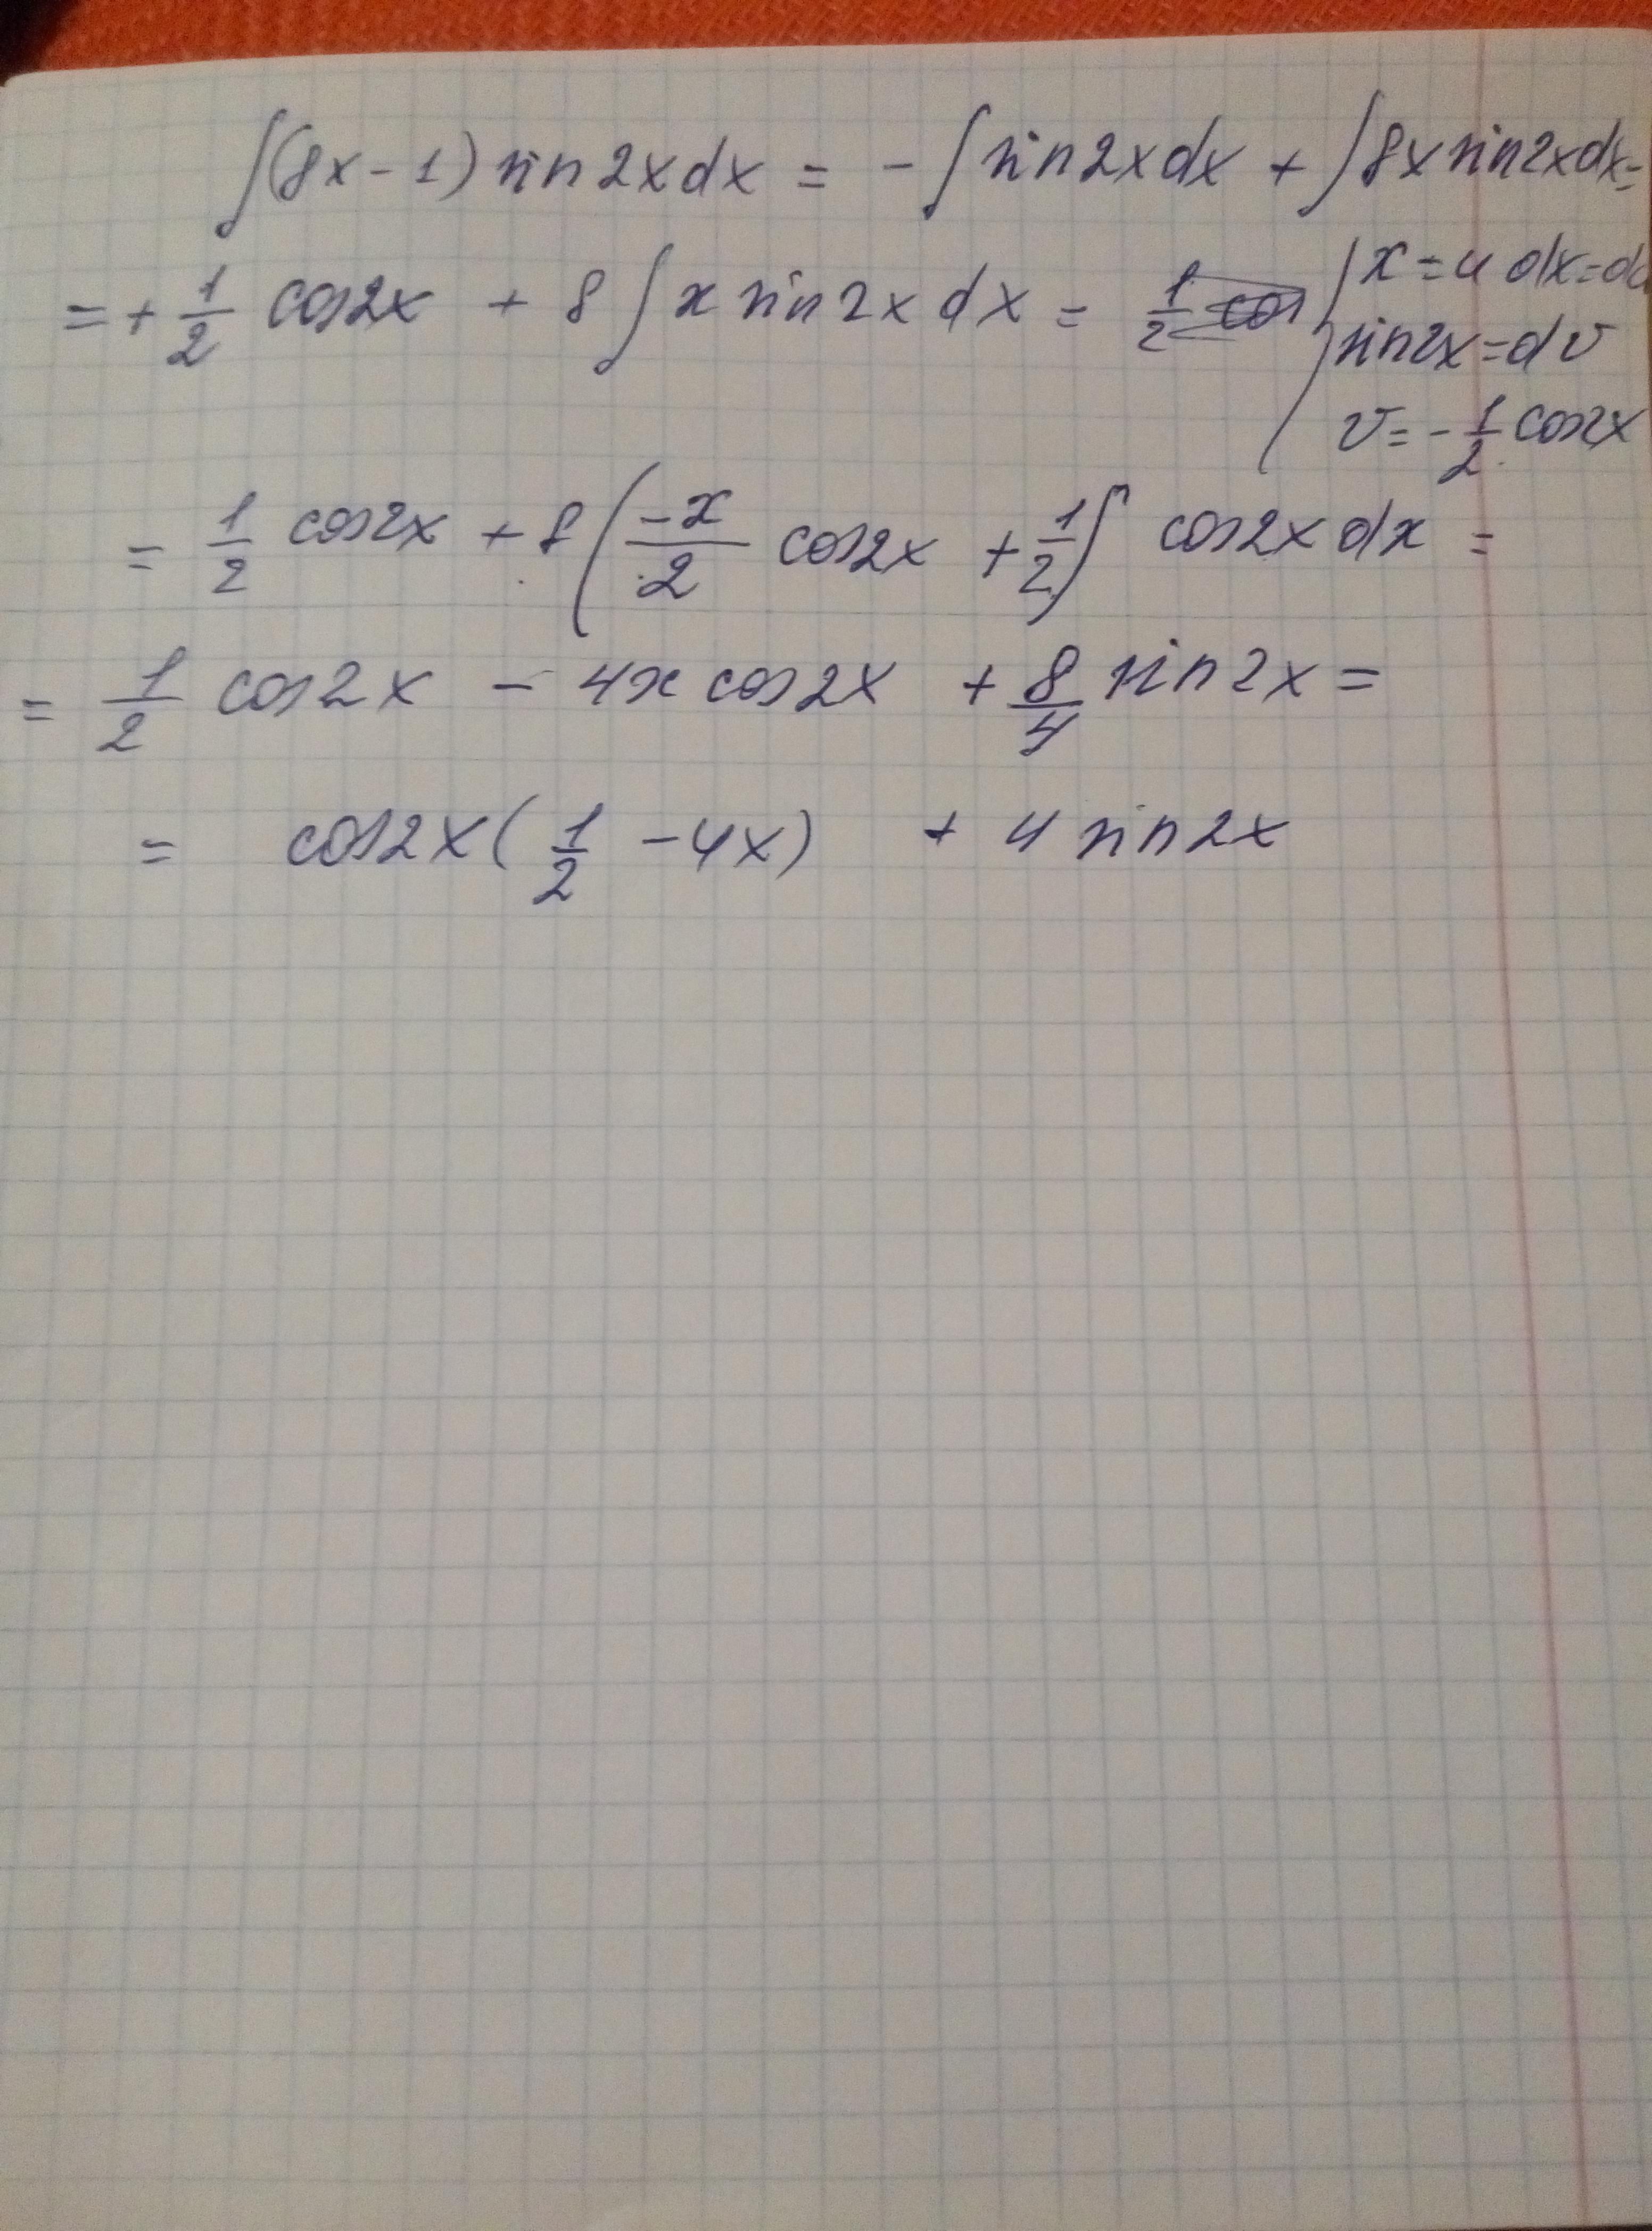 ∫(8x-1) sin2xdx = -∫sin2xdx + ∫8x sin2xdx=
=+ 1/2 cos2x + 8∫x sin2xdx =
x=u dx=du
sin2x=dv
v=-1/2 cos2x
= 1/2 cos2x + 8(-x/2 cos2x +1/2∫ cos2x dx =
= 1/2 cos2x - 4x cos2x + 8/4 sin2x =
= cos2x(1/2 -4x) + 4 sin2x